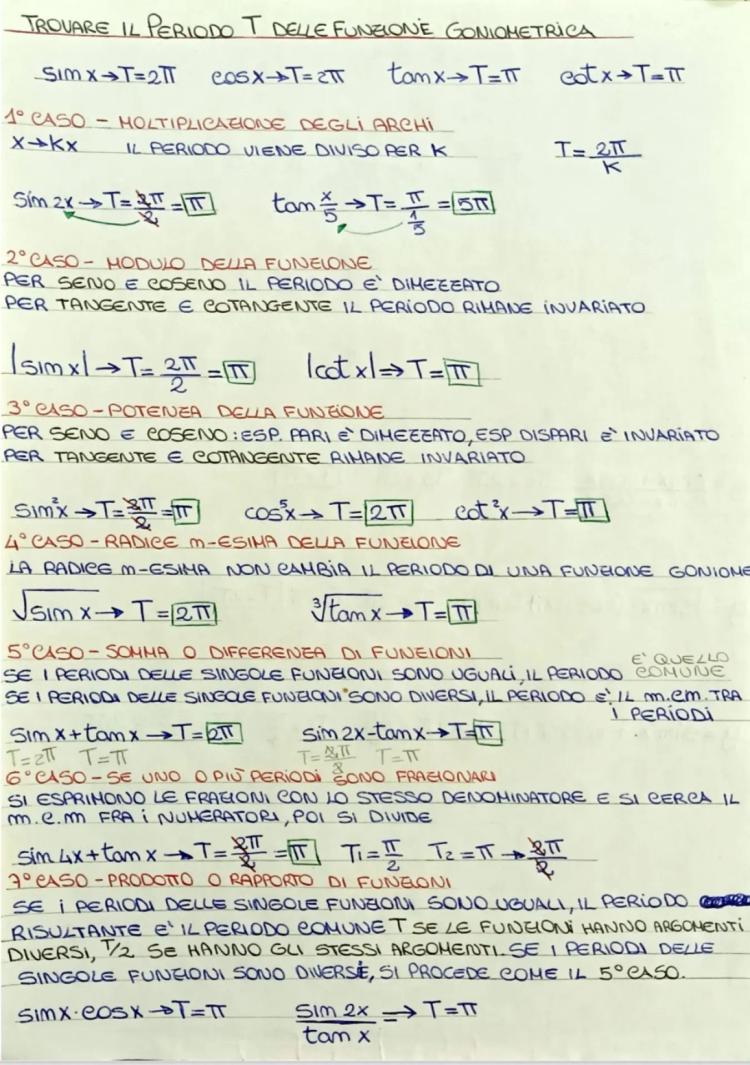 TROVARE IL PERIODO T DELLE FUNZIONE GONIOMETRICA
sin x → T=2π cos x → T=2π tan x → T=π cot x → T=π
1° CASO - MOLTIPLICAZIONE DEGLI ARCHI
X→KX IL PERIODO VIENE DIVISO PER K T= 2π/K
sin 2x → T= 2π/2 = π tan x/5 → T= π/(1/5) = 5π
2° CASO - MODULO DELLA FUNZIONE
PER SENO E COSENO IL PERIODO E' DIMEZZATO
PER TANGENTE E COTANGENTE IL PERIODO RIMANE INVARIATO
|sin x| → T= 2π/2 = π |cot x| ⇒ T= π
3° CASO - POTENZA DELLA FUNZIONE
PER SENO E COSENO: ESP. PARI E' DIMEZZATO, ESP DISPARI E' INVARIATO
PER TANGENTE E COTANGENTE RIMANE INVARIATO
sin²x → T= 2π/2 = π cos⁵x → T= 2π cot²x → T= π
4° CASO - RADICE n-ESIMA DELLA FUNZIONE
LA RADICE n-ESIMA NON CAMBIA IL PERIODO DI UNA FUNZIONE GONIOME
√sin x → T= 2π ³√tan x → T= π
5° CASO - SOMMA O DIFFERENZA DI FUNZIONI
SE I PERIODI DELLE SINGOLE FUNZIONI SONO UGUALI, IL PERIODO E' QUELLO COMUNE
SE I PERIODI DELLE SINGOLE FUNZIONI SONO DIVERSI, IL PERIODO E' IL m.c.m TRA
I PERIODI
sin x + tan x → T= 2π sin 2x - tan x → T= π
T=2π T=π T= 2π/2 T=π
6° CASO - SE UNO O PIÙ PERIODI SONO FRAZIONARI
SI ESPRIMONO LE FRAZIONI CON LO STESSO DENOMINATORE E SI CERCA IL
m.c.m FRA I NUMERATORI, POI SI DIVIDE
sin 4x + tan x → T= 2π/2 = π T₁= π/2 T₂= π → 2π/2
7° CASO - PRODOTTO O RAPPORTO DI FUNZIONI
SE I PERIODI DELLE SINGOLE FUNZIONI SONO UGUALI, IL PERIODO
RISULTANTE E' IL PERIODO COMUNE T SE LE FUNZIONI HANNO ARGOMENTI
DIVERSI, T/2 SE HANNO GLI STESSI ARGOMENTI. SE I PERIODI DELLE
SINGOLE FUNZIONI SONO DIVERSE, SI PROCEDE COME IL 5° CASO.
sin x · cos x → T= π sin 2x/tan x ⇒ T= π